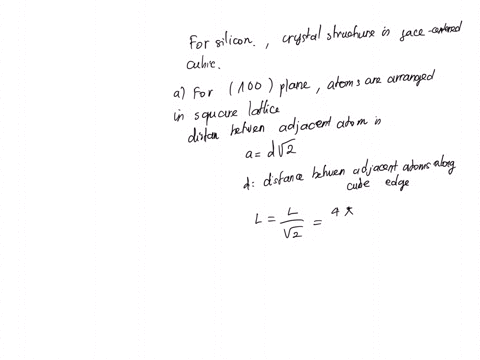 For silicon. , crystal structure is face-centered
cubic.
a) For (100) plane, atoms are arranged
in square lattice
distan between adjacent atom is
a = d√2
d: distance between adjacent atoms along
cube edge
L = L/√2 = 4